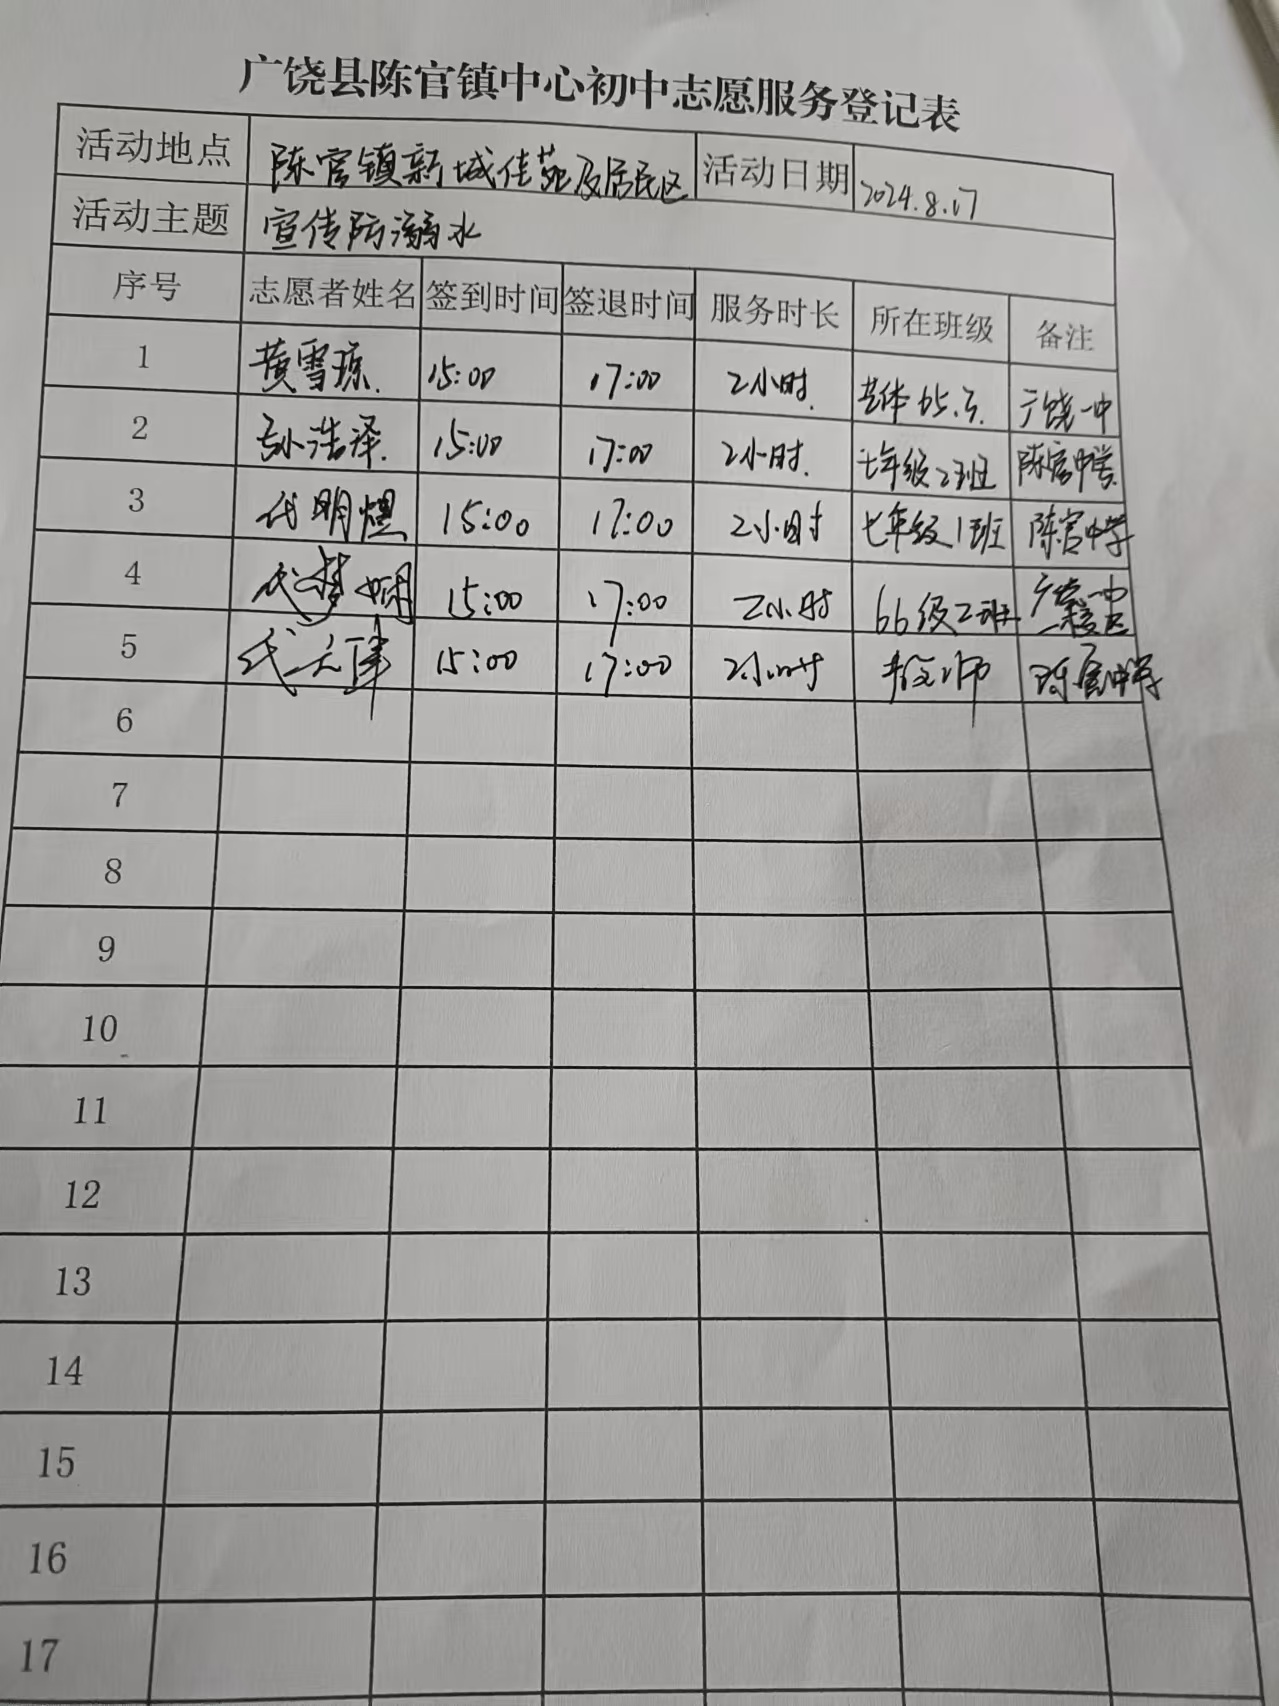 广饶县陈官镇中心初中志愿服务登记表
活动地点 陈官镇新城佳苑及居民区 活动日期 2024.8.17
活动主题 宣传防溺水
序号 志愿者姓名 签到时间 签退时间 服务时长 所在班级 备注
1 黄雪琼 15:00 17:00 2小时 艺体65.3. 广饶一中
2 孙浩泽 15:00 17:00 2小时 七年级2班 陈官中学
3 代明熤 15:00 17:00 2小时 七年级1班 陈官中学
4 代梦娴 15:00 17:00 2小时 66级2班 广饶一中二校区
5 15:00 17:00 2小时 教师 陈官中学
6
7
8
9
10
11
12
13
14
15
16
17